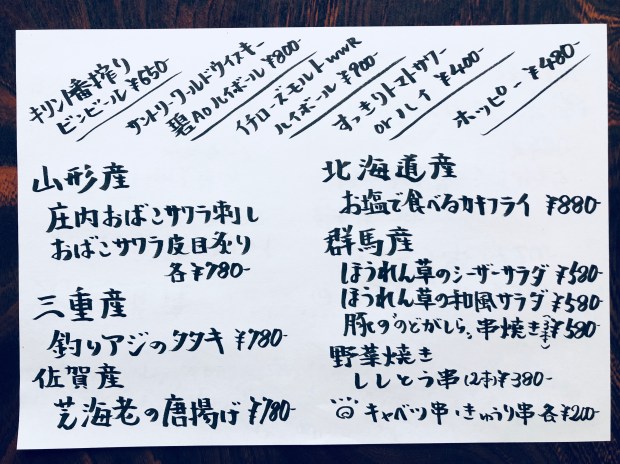 キリン一番搾り
ビンビール ¥650-
サントリーワールドウイスキー
碧Aoハイボール ¥800-
イチローズモルトWWR
ハイボール ¥900-
すっきりトマトサワー
orハイ ¥400-
ホッピー ¥480-
山形産
庄内おばこサワラ刺し
おばこサワラ皮目炙り
各¥780-
三重産
釣りアジのタタキ ¥780-
佐賀産
芝海老の唐揚げ ¥780-
北海道産
お塩で食べるカキフライ ¥880-
群馬産
ほうれん草のシーザーサラダ ¥580-
ほうれん草の和風サラダ ¥580-
豚の"のどがしら"串焼き(2本) ¥580-
野菜焼き
ししとう串(2本) ¥380-
キャベツ串・きゅうり串 各¥200-